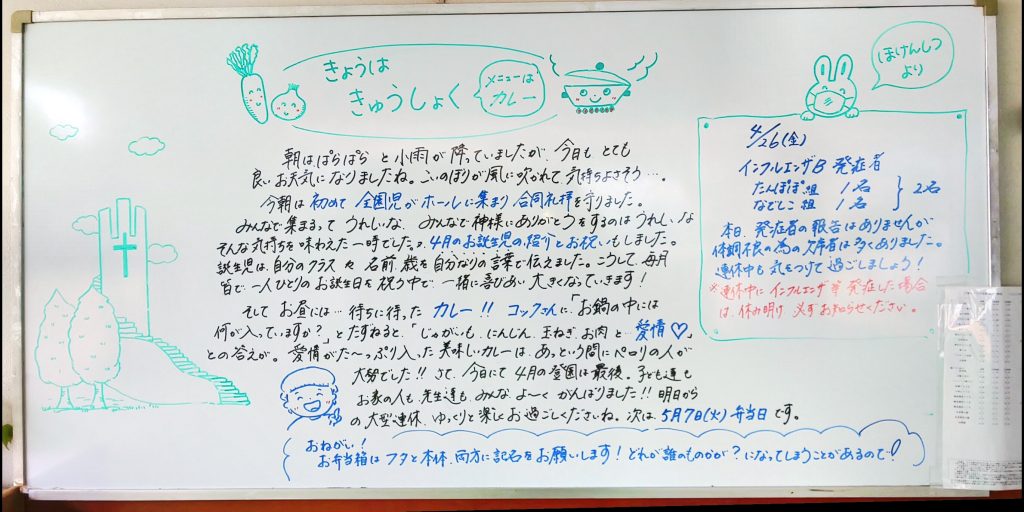 きょうは
きゅうしょく
メニューは
カレー
朝はぱらぱらと小雨が降っていましたが、今日もとても
良いお天気になりましたね。こいのぼりが風に吹かれて気持ちよさそう…。
今朝は初めて全園児がホールに集まり合同礼拝を守りました。
みんなで集まるってうれしいな、みんなで神様にありがとうをするのはうれしいな
そんな気持ちを味わえた一時でした。4月のお誕生児の紹介とお祝いもしました。
誕生児は、自分のクラス名 名前、歳を自分なりの言葉で伝えました。こうして、毎月
皆で一人ひとりのお誕生日を祝う中で、一緒に喜びあい大きくなっていきます!
そしてお昼には…待ちに待ったカレー!! コックさんに、「お鍋の中には
何が入っていますか?」とたずねると、「じゃがいも、にんじん、玉ねぎ、お肉と…愛情♡」
との答えが。愛情がた〜っぷり入った美味しいカレーは、あっという間にペロリの人が
大勢でした!! さて、今日にて4月の登園は最後。子ども達も
お家の人も先生達も、みんなよ〜くがんばりました!! 明日から
の大型連休、ゆっくりと楽しくお過ごしくださいね。次は、5月7日(火)弁当日です。
おねがい!
お弁当箱はフタと本体、両方に記名をお願いします!どれが誰のものかが?になってしまうことがあるので!
ほけんしつ
より
4/26(金)
インフルエンザB 発症者
たんぽぽ組 1名
なでしこ組 1名
2名
本日、発症者の報告はありませんが、
体調不良の為の欠席者は多くありました。
連休中も気をつけて過ごしましょう!
※連休中にインフルエンザ等発症した場合
は、休み明け、必ずお知らせください。